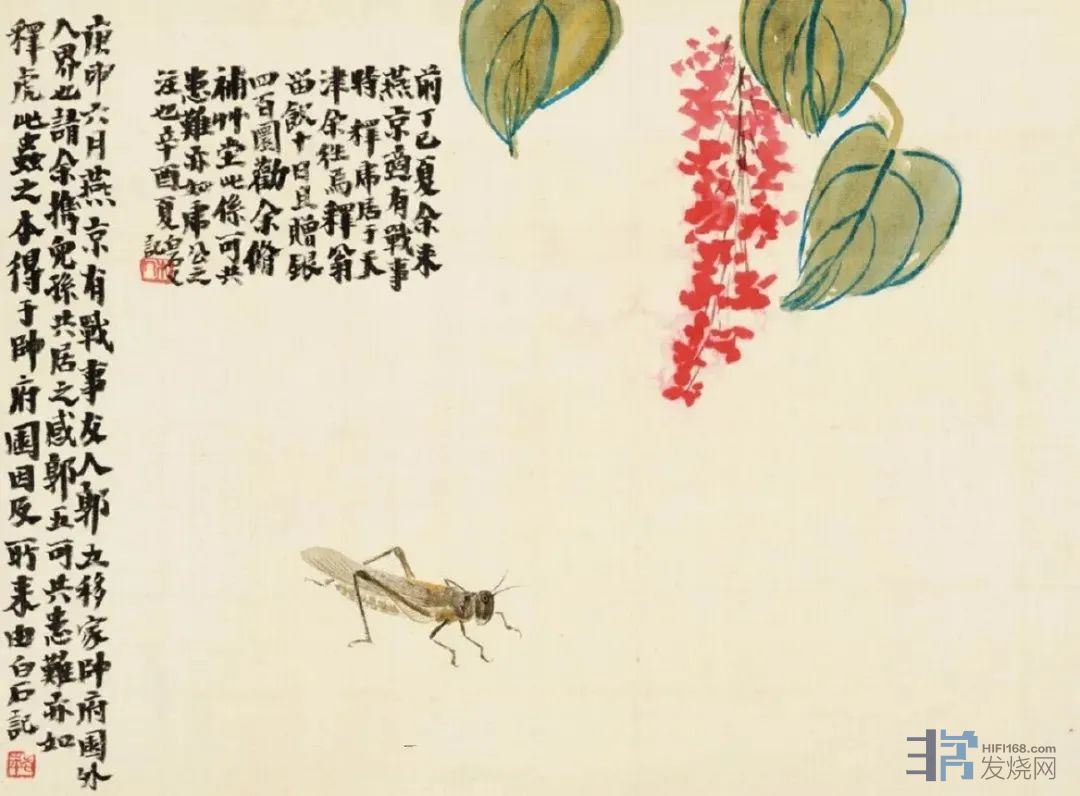 庚申六月燕京有戰事友人郭五移家帥府園外
人界也請余攜兒孫共居之感郭五可共患難亦如
釋虎此蟲之本得于帥府園因及所來由白石記
前丁巳夏余來
燕京適有戰事
時釋虎居于天
津余往焉釋翁
留飲十日且贈銀
四百圓勸余脩
補艸堂此係可共
患難亦如虎公之
注也辛酉夏白石又記
HIFI168.com
发烧网